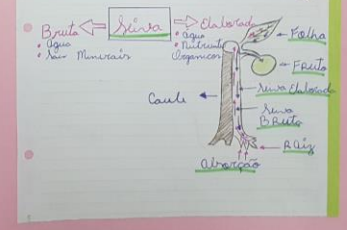 Seiva
Bruta
• Água
• Sais Minerais
Elaborada
• água
• Nutrientes
Orgânicos
Folha
Fruto
Seiva Elaborada
Caule
Seiva
Bruta
Raiz
Absorção